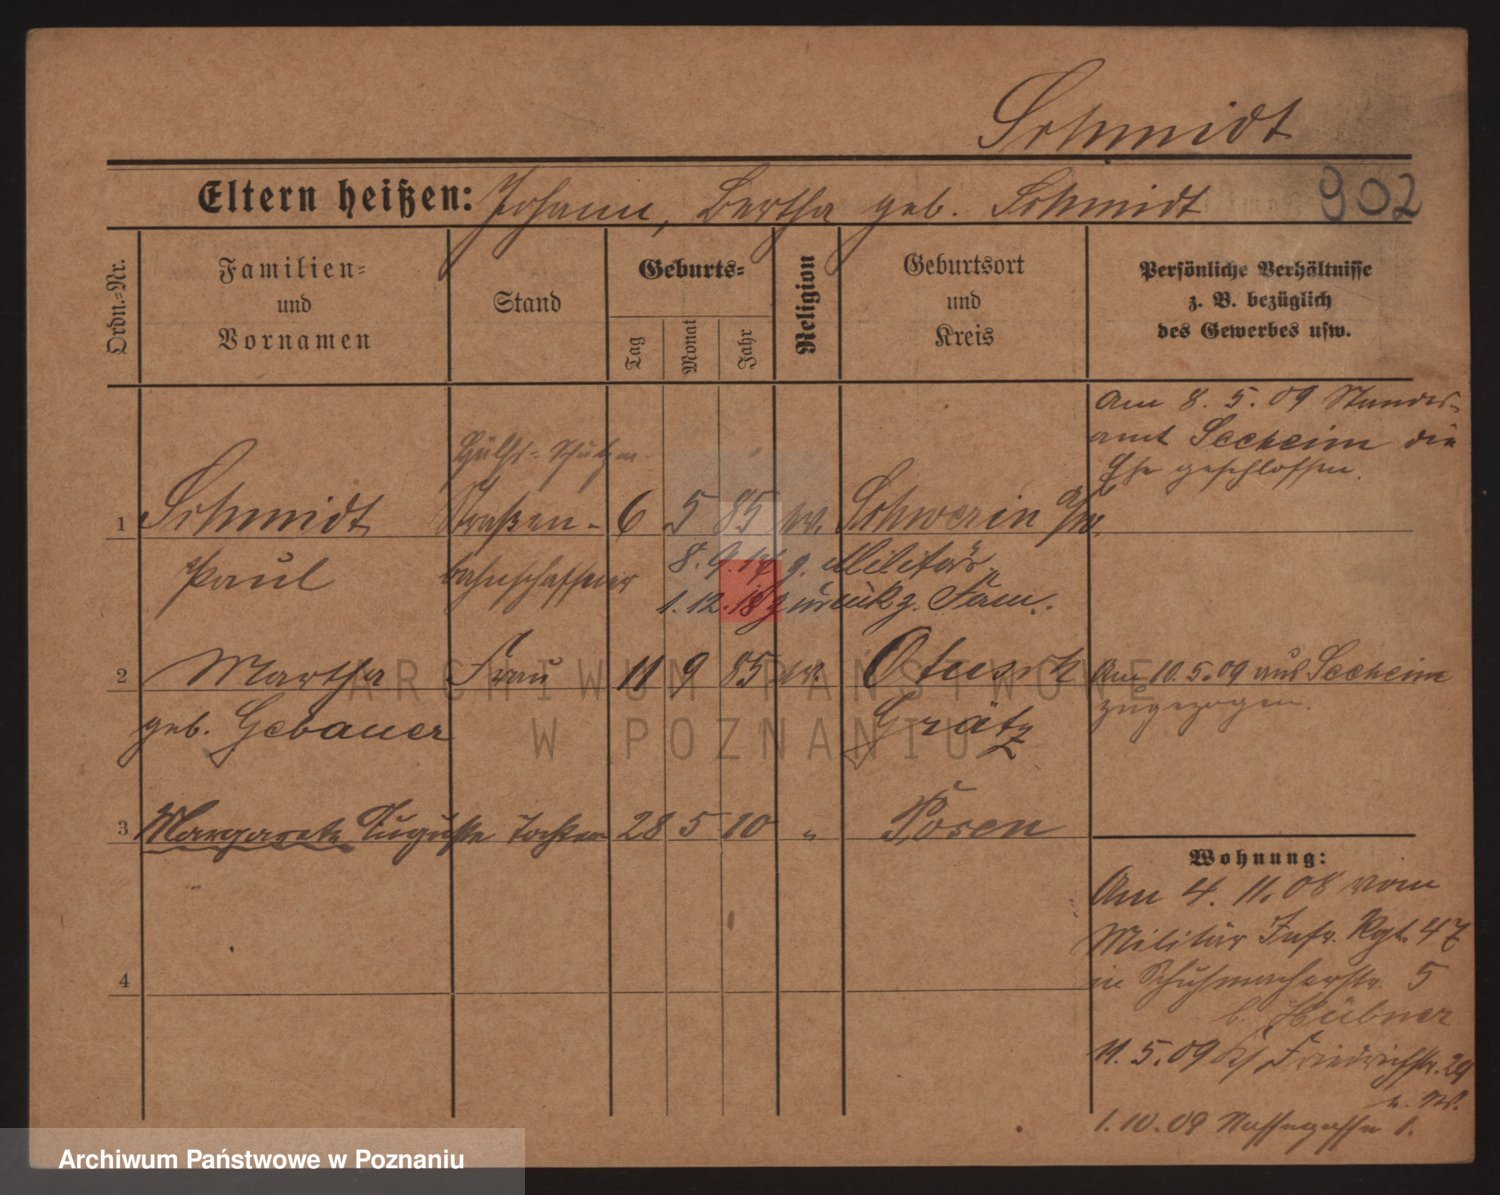 Schmidt
Eltern heißen: Johann, Bertha geb. Schmidt 902
Ordn.-Nr.
Familien-
und
Vornamen
Stand
Geburts-
Tag
Monat
Jahr
Religion
Geburtsort
und
Kreis
Persönliche Verhältnisse
z. B. bezüglich
des Gewerbes usw.
Am 8. 5. 09 Standes-
amt Seeheim die
Ehe geschlossen.
Hülfs-Schutzm.
1 Schmidt Straßen- 6 5 85 Schwerin a/W.
Paul bahnschaffner 8. 9. 17 z. Militär
1. 12. 18 zurück z. Fam.
2 Martha Frau 11 9 85 Otusch Am 10. 5. 09 aus Seeheim
geb. Gebauer Grätz zugezogen.
3 Margarete Auguste Tochter 28 5 10 " Posen
4
Wohnung:
Am 4. 11. 08 vom
Militär Infr. Rgt. 47
in Schuhmacherstr. 5
b. Hübner
11. 5. 09 Friedrichstr. 29
1. 10. 09 Nassegasse 1.
ARCHIWUM PAŃSTWOWE
W POZNANIU
Archiwum Państwowe w Poznaniu